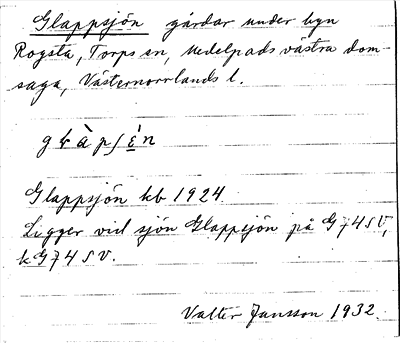 Glappsjön gårdar under byn
Rogsta, Torps sn, Medelpads västra dom-
saga, Västernorrlands l.
Glappsjön kb 1924
Ligger vid sjön Glappsjön på G74SV,
k G74SV.
Valter Jansson 1932.